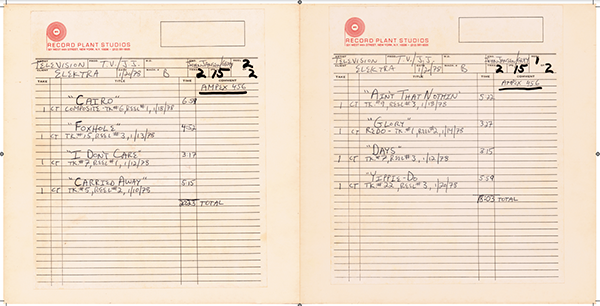 RECORD PLANT STUDIOS
321 WEST 44th STREET, NEW YORK, N.Y. 10036 • (212) 581-6505
TELEVISION T.V./J.J.
ELEKTRA 1/2/78 B 2 15 2/2
TAKE TITLE TIME COMMENT
AMPEX 456
"CAIRO" 6:54
1 CT COMPOSITE - TK #6, REEL #1, 1/18/78
"FOXHOLE" 4:52
1 CT TK #15, REEL #3, 1/13/78
"I DON'T CARE" 3:17
1 CT TK #7, REEL #1, 1/12/78
"CARRIED AWAY" 5:15
1 CT TK #5, REEL #2, 1/10/78
TOTAL
RECORD PLANT STUDIOS
321 WEST 44th STREET, NEW YORK, N.Y. 10036 • (212) 581-6505
TELEVISION T.V./J.J.
ELEKTRA 1/2/78 B 2 15 1-2
TAKE TITLE TIME COMMENT
AMPEX 456
"AIN'T THAT NOTHIN'" 5:22
1 CT TK #9, REEL #3, 1/18/78
"GLORY" 3:27
1 CT REDO - TK #1, REEL #2, 1/14/78
"DAYS" 3:15
1 CT TK #7, REEL #3, 1/12/78
"YIPPIE-DO 5:59
1 CT TK #22, REEL #3, 1/2/78
18:03 TOTAL